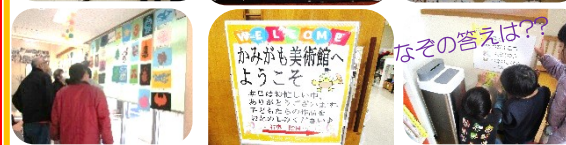 WELCOME
かみがも美術館へ
ようこそ
本日はお忙しい中
ありがとうございます。
子どもたちの作品を
お楽しみください♪
なぞの答えは??